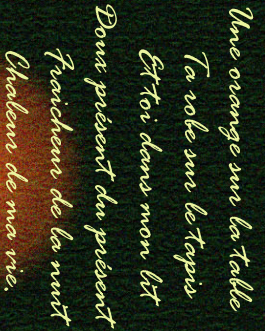 Une orange sur la table
Ta robe sur le tapis
Et toi dans mon lit
Doux présent du présent
Fraîcheur de la nuit
Chaleur de ma vie.